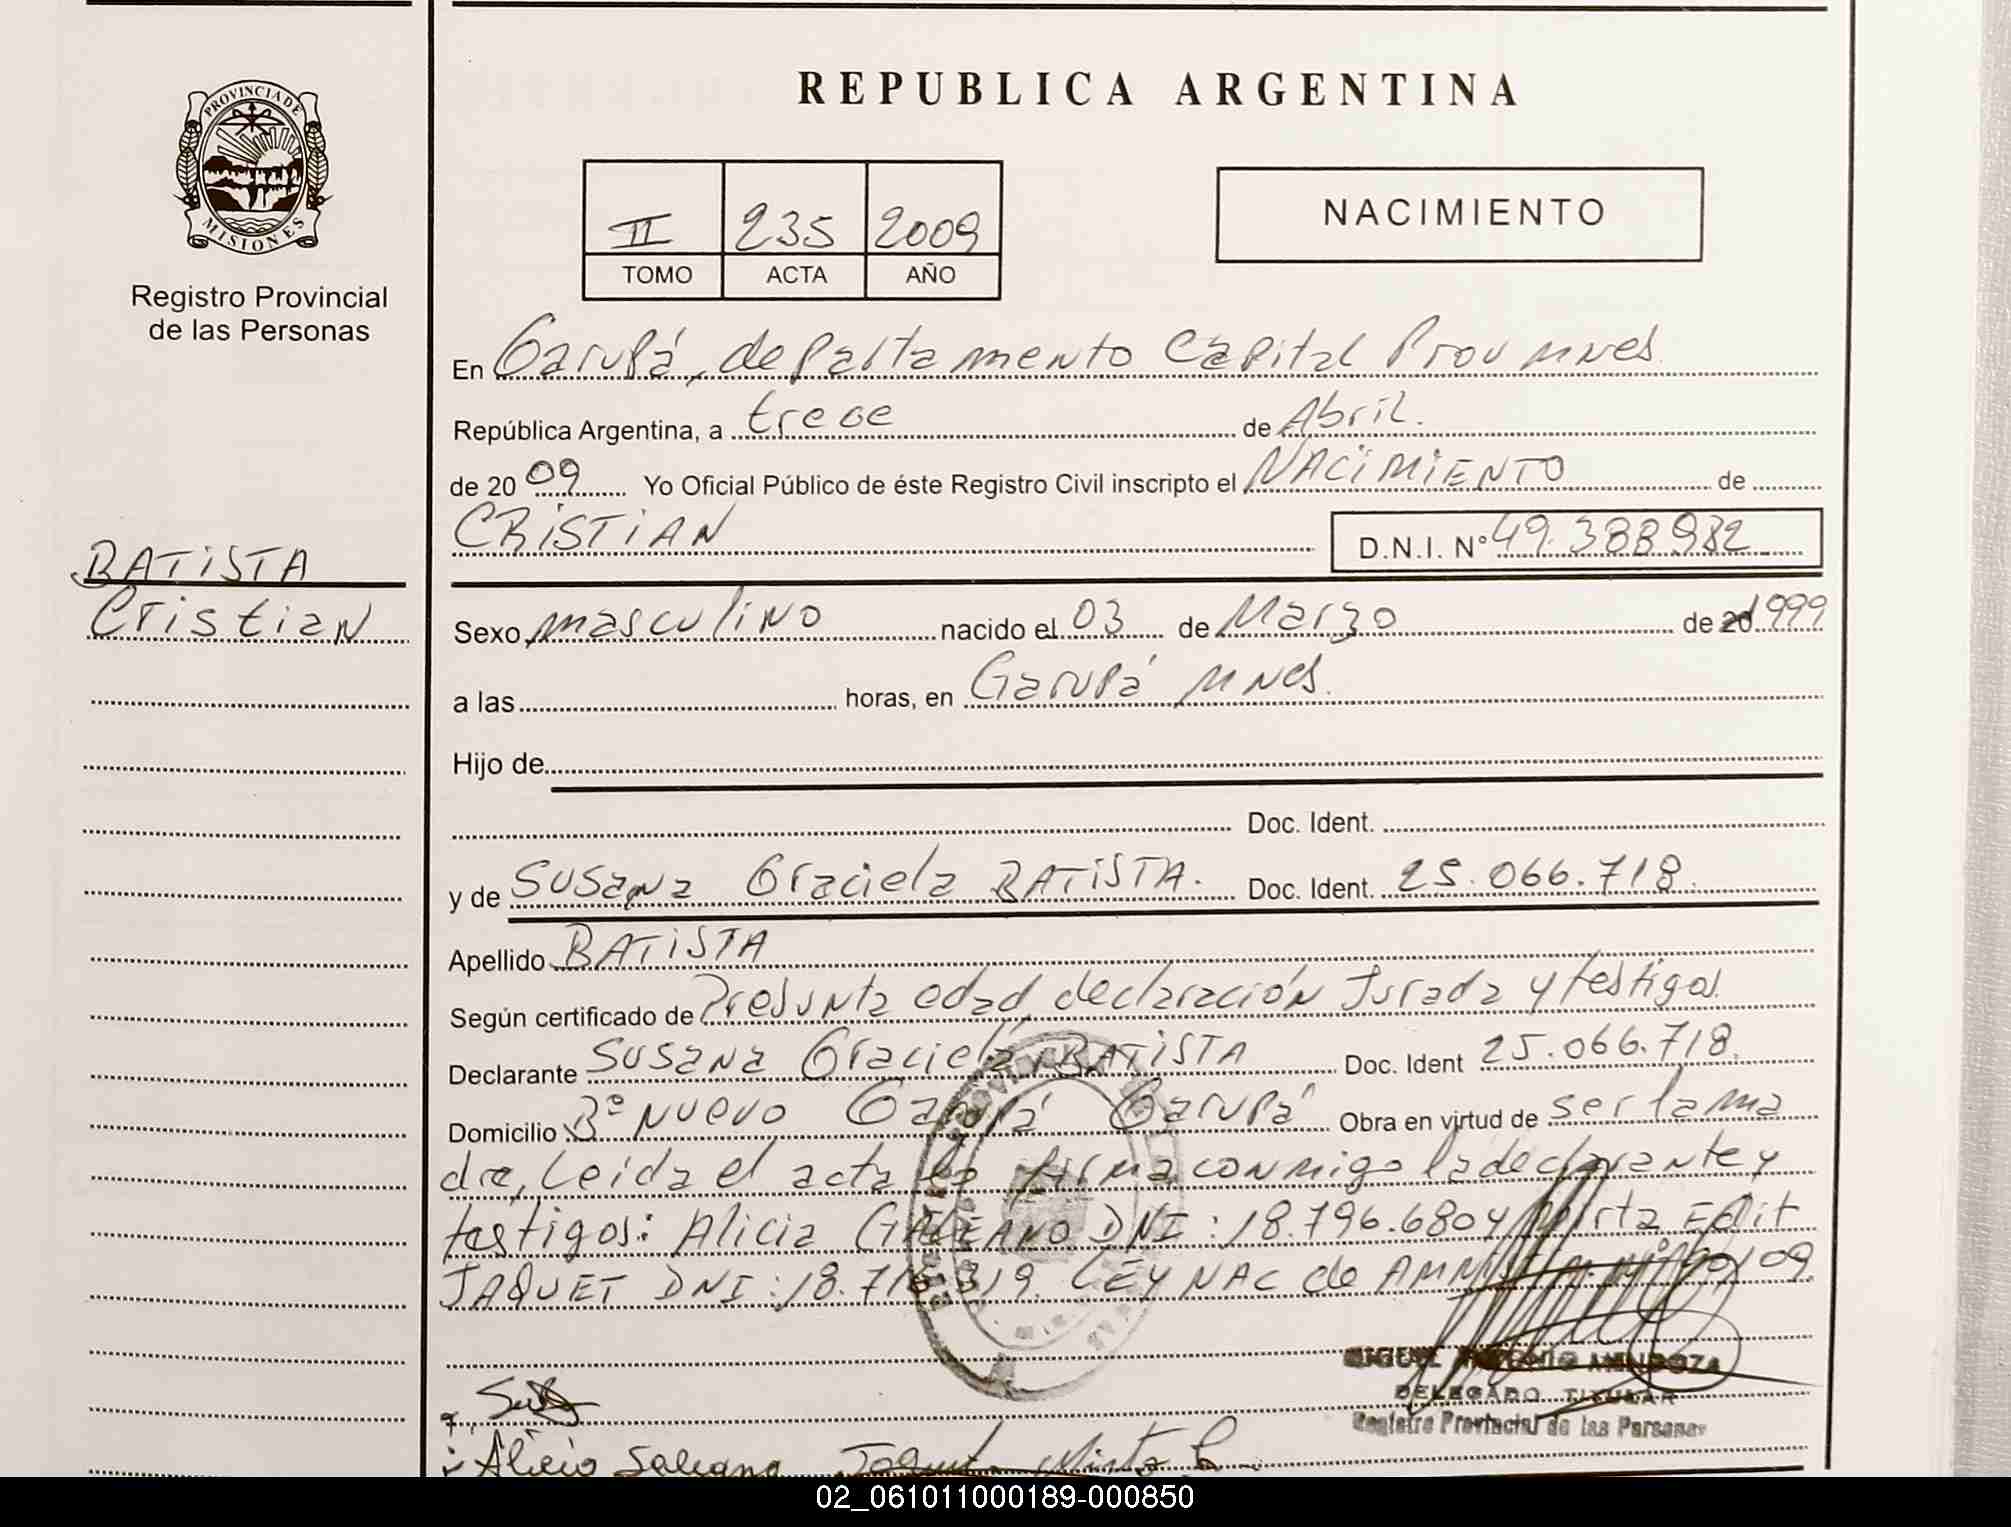 REPUBLICA ARGENTINA
PROVINCIA DE
MISIONES
Registro Provincial
de las Personas
II 235 2009
TOMO ACTA AÑO
NACIMIENTO
En Garupá, departamento Capital Prov Mnes.
República Argentina, a trece de Abril.
de 20 09 Yo Oficial Público de éste Registro Civil inscripto el NACIMIENTO de
CRISTIAN D.N.I. N° 49.388.982
BATISTA
Cristian
Sexo masculino nacido el 03 de Marzo de 20 1999
a las horas, en Garupá Mnes.
Hijo de
Doc. Ident.
y de Susana Graciela BATISTA. Doc. Ident. 25.066.718.
Apellido BATISTA
Según certificado de Presunta edad, declaración Jurada y testigos.
Declarante Susana Graciela BATISTA Doc. Ident 25.066.718.
Domicilio B° Nuevo Garupá Garupá Obra en virtud de ser la ma
dre, Leida el acta la firma conmigo la declarante y
testigos: Alicia GALEANO DNI: 18.796.680 y Mirta Edit
JAQUET DNI: 18.716.319. LEY NAC de
MIGUEL ANTONIO MENDOZA
DELEGADO TITULAR
Registro Provincial de las Personas
Alicia Galeano Jaquet Mirta E.
02_061011000189-000850